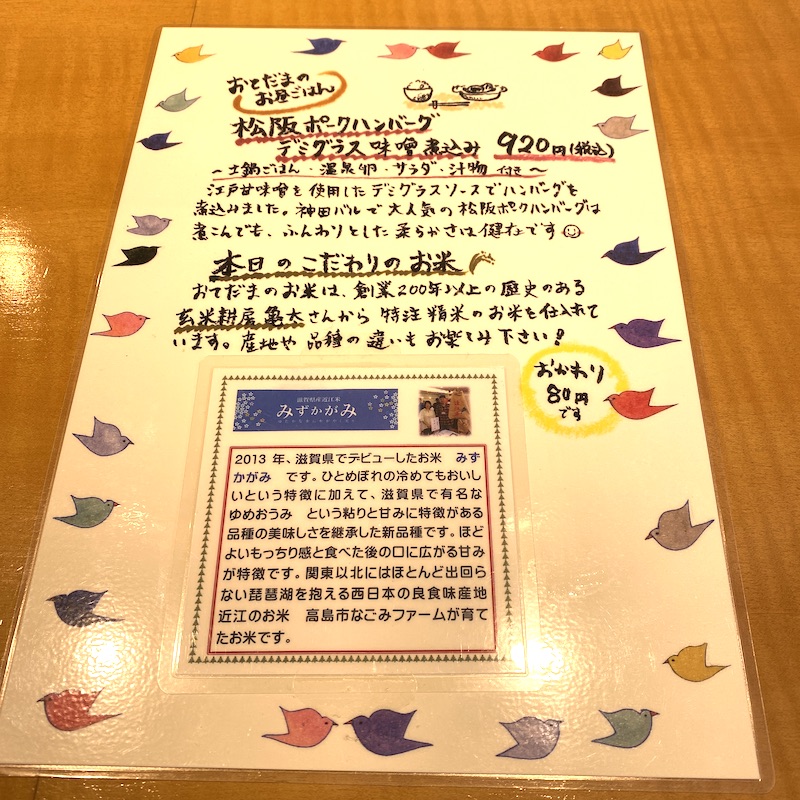 おてだまの
お昼ごはん
松阪ポークハンバーグ
デミグラス味噌煮込み 920円(税込)
～土鍋ごはん・温泉卵・サラダ・汁物 付き～
江戸甘味噌を使用したデミグラスソースでハンバーグを
煮込みました。神田バルで大人気の松阪ポークハンバーグは
煮こんでも、ふんわりとした柔らかさは健在です
本日のこだわりのお米
おてだまのお米は、創業200年以上の歴史のある
玄米耕房亀太さんから 特注精米のお米を仕入れて
います。産地や品種の違いもお楽しみ下さい!
おかわり
80円
です
滋賀県産近江米
みずかがみ
2013 年、滋賀県でデビューしたお米 みず
かがみ です。ひとめぼれの冷めてもおいし
いという特徴に加えて、滋賀県で有名な
ゆめおうみ という粘りと甘みに特徴がある
品種の美味しさを継承した新品種です。ほど
よいもっちり感と食べた後の口に広がる甘み
が特徴です。関東以北にはほとんど出回ら
ない琵琶湖を抱える西日本の良食味産地
近江のお米 高島市なごみファームが育て
たお米です。